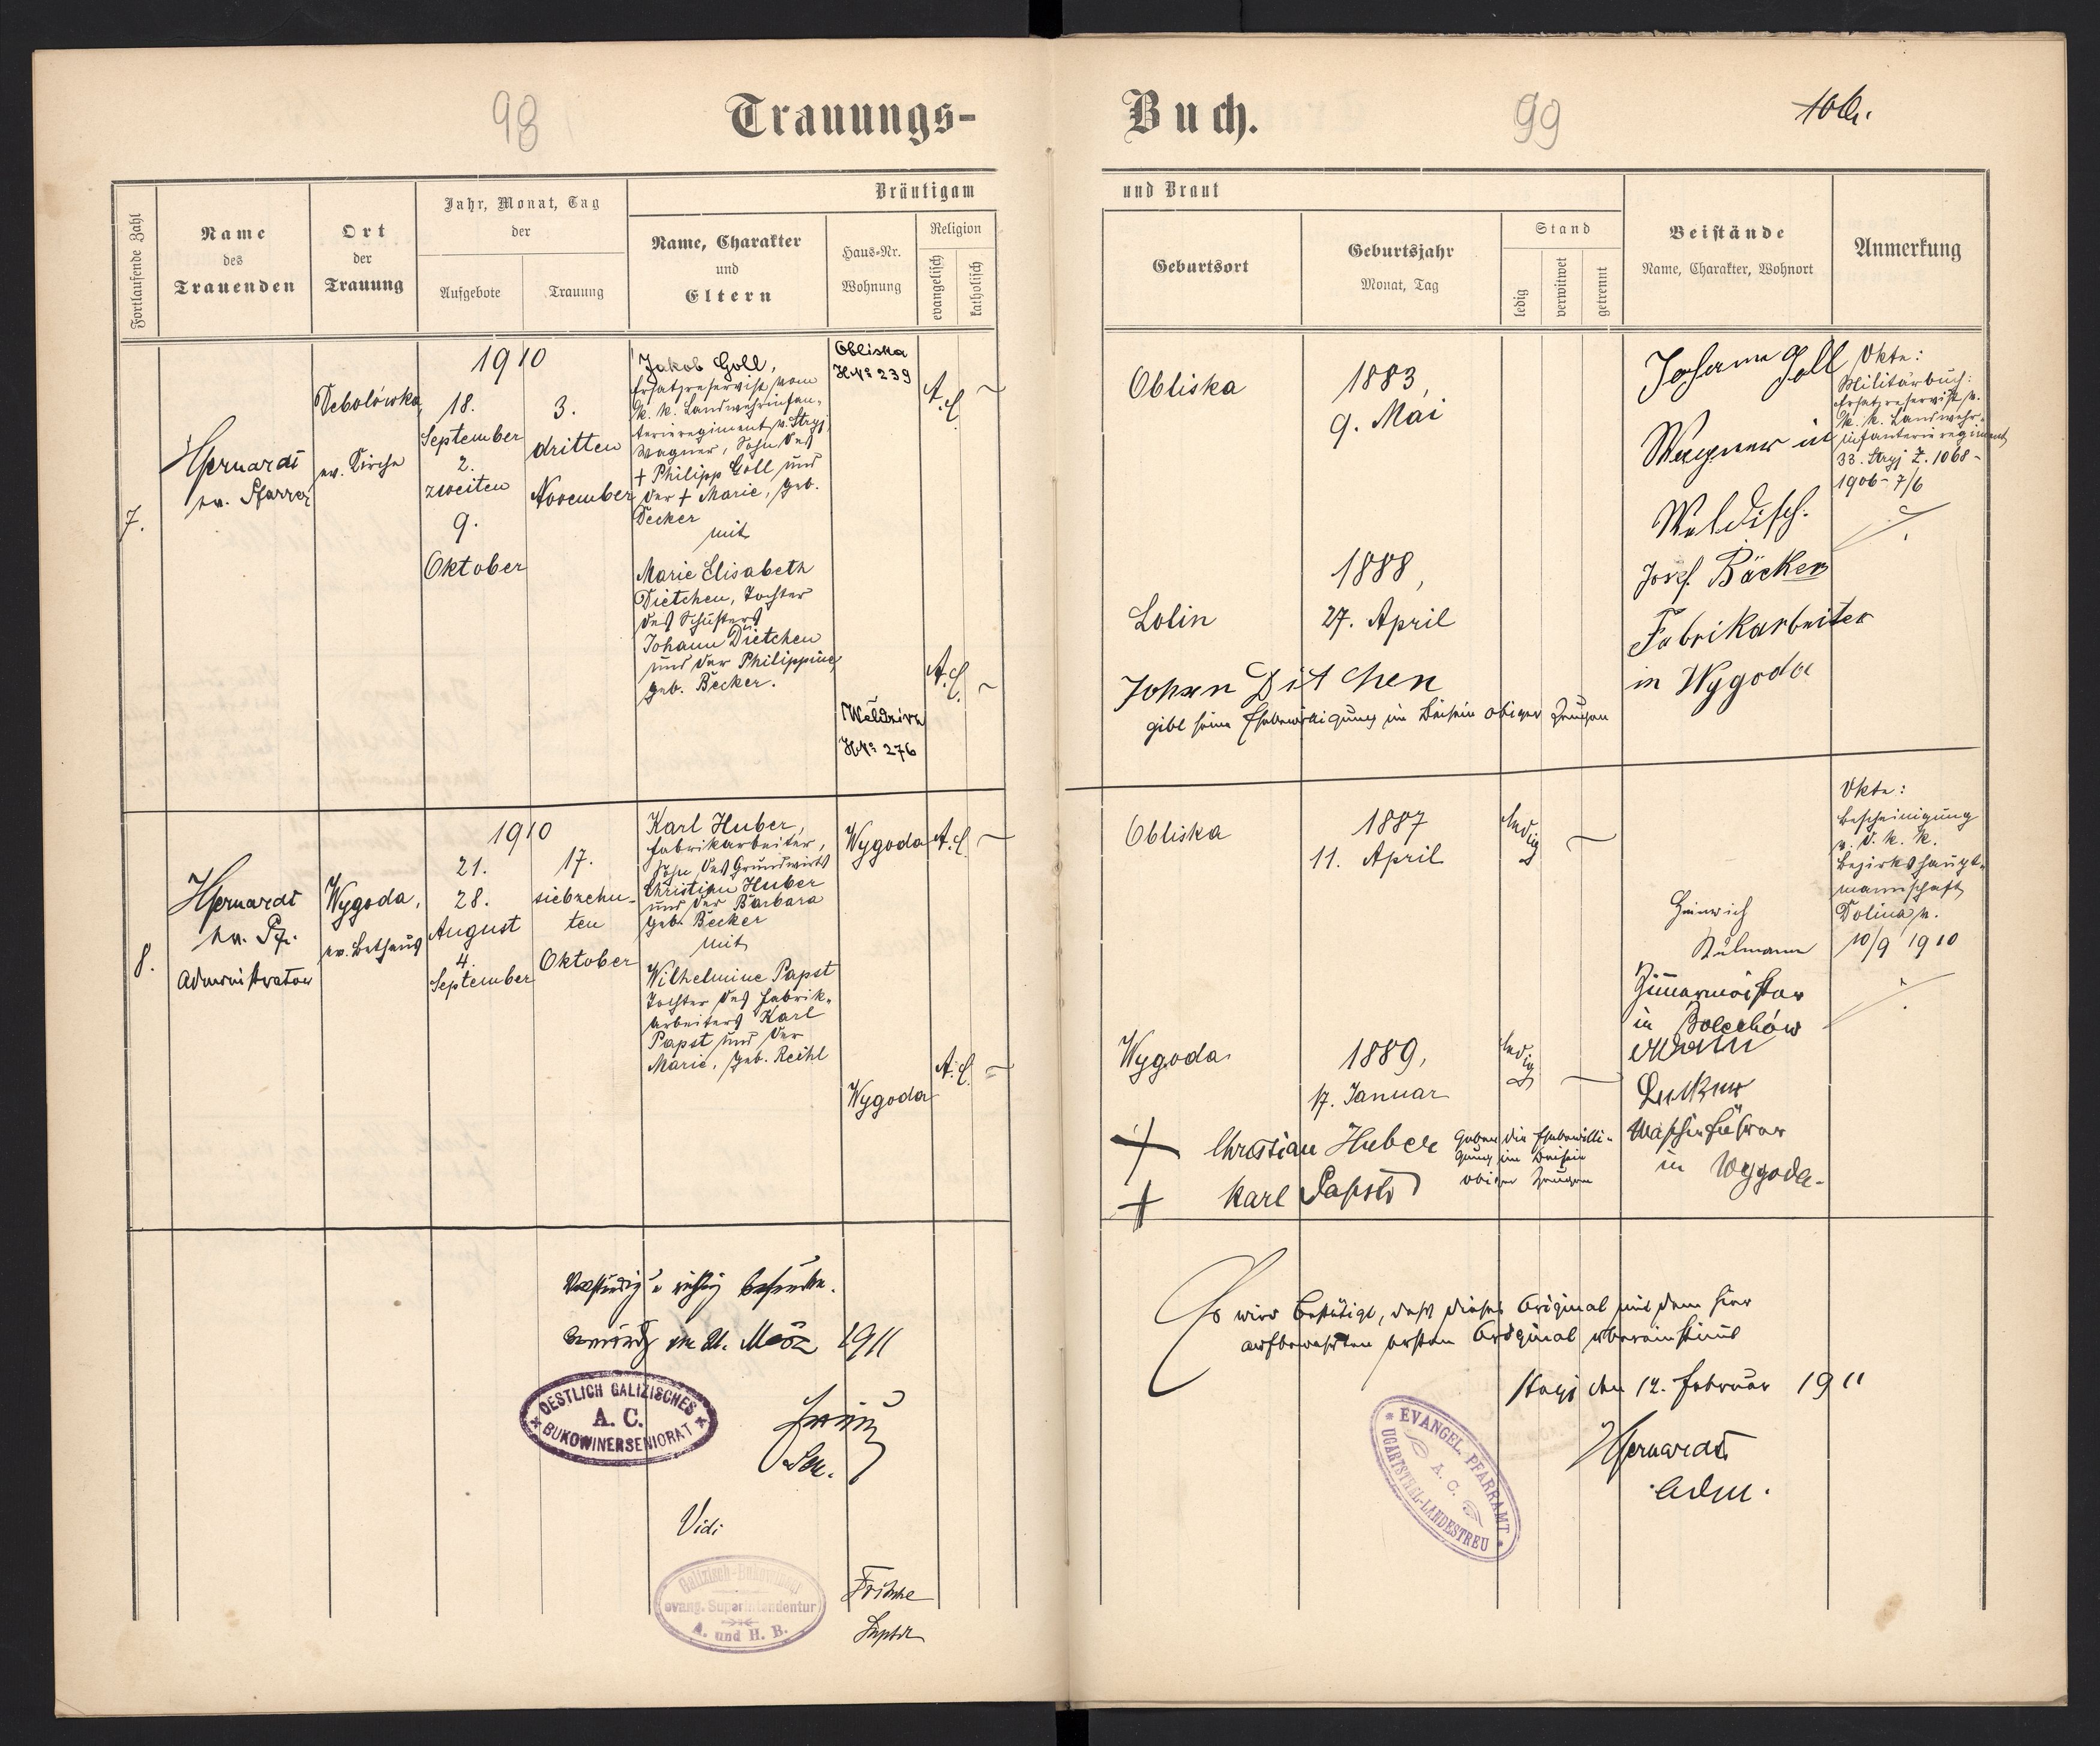 98
Trauungs-
Fortlaufende Zahl
Name
des
Trauenden
Ort
der
Trauung
Jahr, Monat, Tag
der
Aufgebote
Trauung
Bräutigam
Name, Charakter
und
Eltern
Haus-Nr.
Wohnung
Religion
evangelisch
katholisch
7.
ev. Pfarrer
Debolówka,
ev. Kirche
1910
18.
September
2.
zweiten
9.
Oktober
3.
dritten
November
Jakob Goll,
Ersatzreservist vom
k. k. Landwehrinfan-
terieregiment N. Stryj,
Wagner, Sohn des
+ Philipp Goll und
der + Marie, geb.
Decker
mit
Marie Elisabeth
Dietchen, Tochter
des Schusters
Johann Dietchen
und der Philippine,
geb. Becker.
Obliska
HNo 239
Weldzirz
HNo 276
A.C.
A.C.
8.
ev. Pf.
Administrator
Wygoda,
ev. Bethaus
1910
21.
28.
August
4.
September
17.
siebzehn-
ten
Oktober
Karl Huber,
Fabrikarbeiter,
Sohn des Grundwirts
Christian Huber
und der Barbara
geb. Becker
mit
Wilhelmine Papst
Tochter des Fabrik-
arbeiters Karl
Papst und der
Marie, geb. Reihl
Wygoda
Wygoda
A.C.
A.C.
Vollständig u richtig befunden.
am 21. März 1911
OESTLICH GALIZISCHES
A. C.
BUKOWINERSENIORAT
Sen.
Vidi
Galizisch-Bukowiner
evang. Superintendentur
A. und H. B.
Fritsche
Suptdt
Buch.
99
und Braut
Geburtsort
Geburtsjahr
Monat, Tag
Stand
ledig
verwitwet
getrennt
Beistände
Name, Charakter, Wohnort
Anmerkung
Obliska
1883,
9. Mai
Lolin
1888,
27. April
Johann Ditchen
gibt seine Ehebewilligung im Beisein obiger Zeugen
Johann Goll
Wagner in
Weldisch.
Josef Bäcker
Fabrikarbeiter
in Wygoda
Akte:
Militärbuch:
Ersatzreservist v.
k. k. Landwehr-
infanterieregiment
33. Stryj Z. 1068-
1906- 7/6
Obliska
1887
11. April
ledig
Wygoda.
1889,
17. Januar
ledig
+ Christian Huber
+ Karl Papst
Gaben die Ehebewilli-
gung im Beisein
obiger Zeugen
Heinrich
Zimmermeister
in Bolechów
Maschinführer
in Wygoda.
Akte:
Bescheinigung
v. d. k. k.
Bezirkshaupt-
mannschaft
Dolina v.
10/9 1910
Es wird bestätigt, daß dieses Original mit dem hier
aufbewahrten ersten Original übereinstimmt
Stryj den 12. Februar 1911
Adm.
EVANGEL. PFARRAMT
A. C.
UGARTSTHAL-LANDESTREU